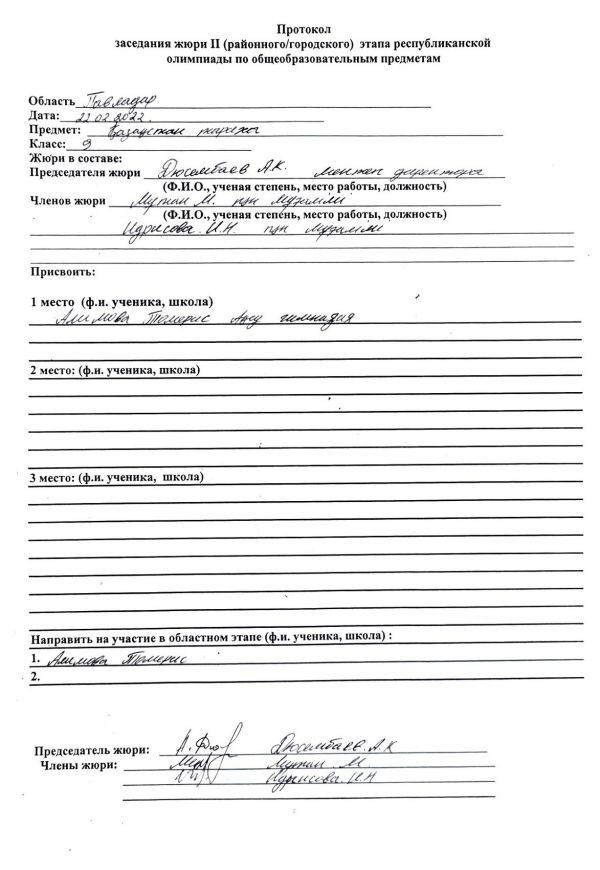 Протокол
заседания жюри II (районного/городского) этапа республиканской
олимпиады по общеобразовательным предметам
Область Павлодар
Дата: 22.02.2022.
Предмет: Қазақстан тарихы
Класс: 9
Жюри в составе:
Председателя жюри Дюсембаев А.К. мектеп директоры
(Ф.И.О., ученая степень, место работы, должность)
Членов жюри М. пән мұғалімі
(Ф.И.О., ученая степень, место работы, должность)
Идрисова И.Н пән мұғалімі
Присвоить:
1 место (ф.и. ученика, школа)
Алимова Томирис Ақсу гимназия
2 место: (ф.и. ученика, школа)
3 место: (ф.и. ученика, школа)
Направить на участие в областном этапе (ф.и. ученика, школа) :
1. Алимова Томирис
2.
Председатель жюри: Дюсембаев.А.К
Члены жюри: М
Идрисова.И.Н